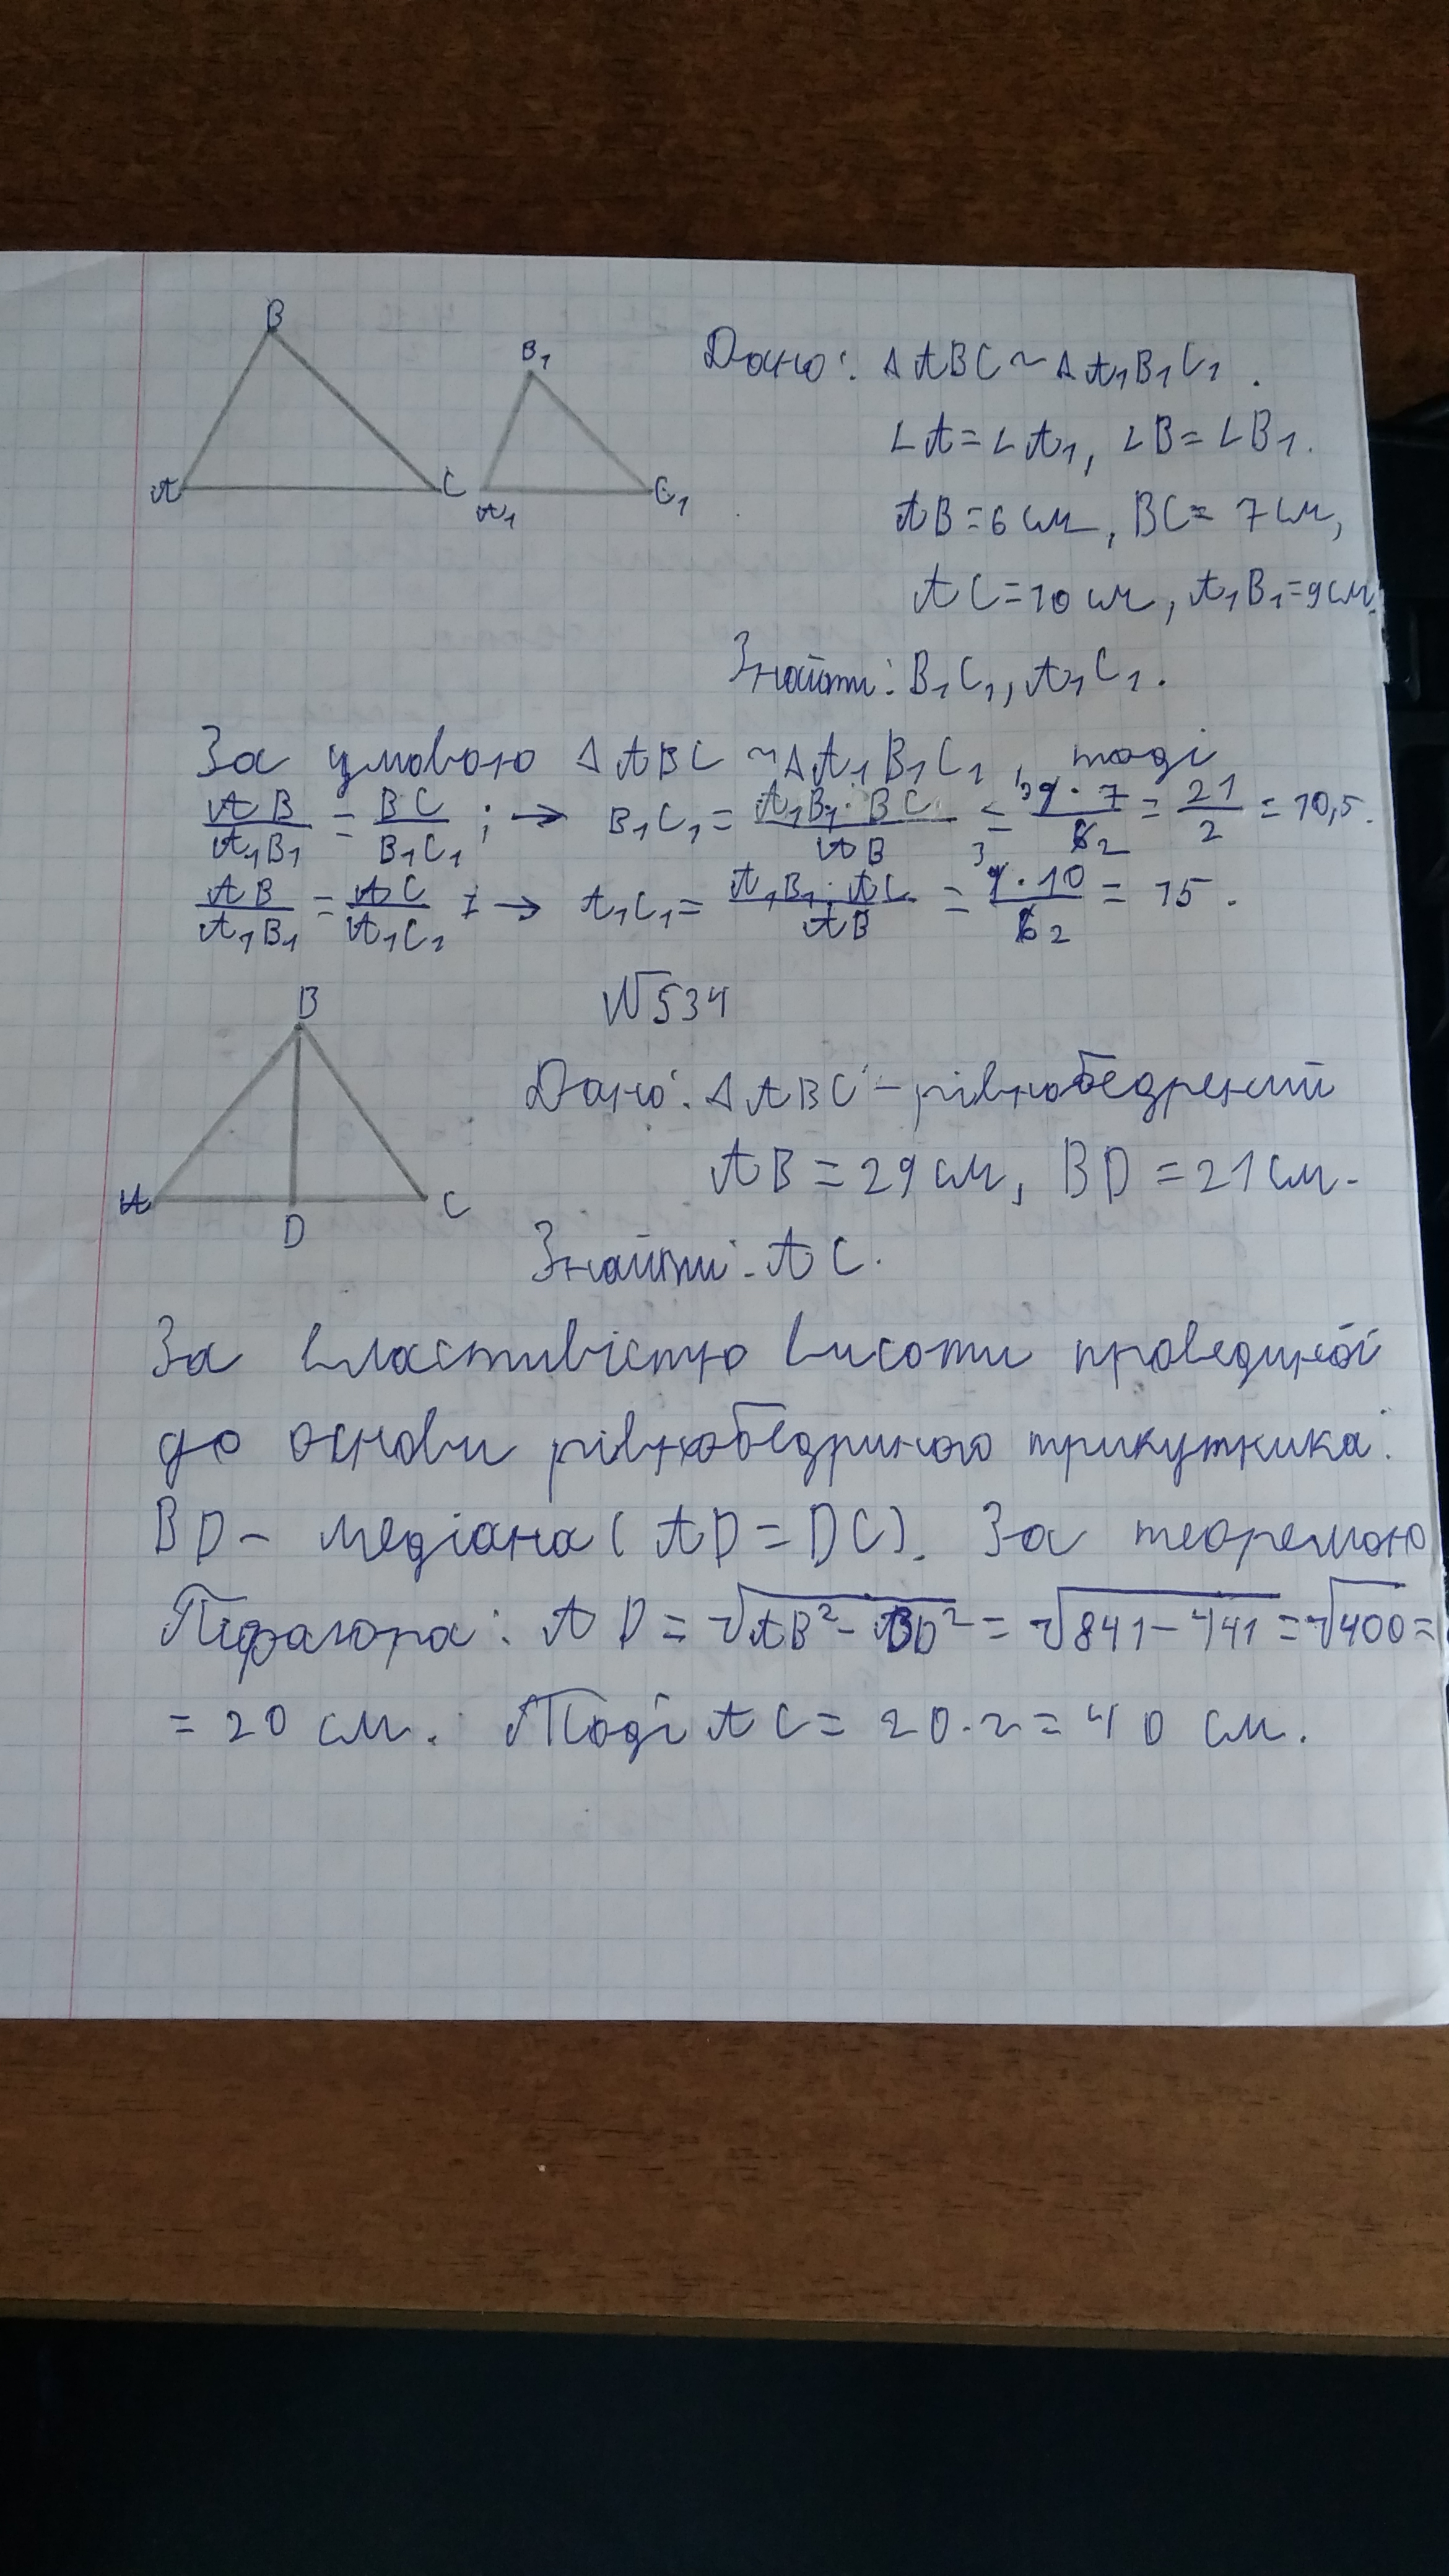 B
A
C
B₁
A₁
C₁
Дано: △ABC ~ △A₁B₁C₁.
∠A = ∠A₁, ∠B = ∠B₁.
AB = 6 см, BC = 7 см,
AC = 10 см, A₁B₁ = 9 см.
Знайти: B₁C₁, A₁C₁.
За умовою △ABC ~ △A₁B₁C₁, тоді
AB/A₁B₁ = BC/B₁C₁; → B₁C₁ = A₁B₁ · BC/AB = 9 · 7/6 3 2 = 21/2 = 10,5.
AB/A₁B₁ = AC/A₁C₁; → A₁C₁ = A₁B₁ · AC/AB = 9 · 10/6 3 2 = 15.
№534
B
A
D
C
Дано: △ABC – рівнобедрений
AB = 29 см, BD = 21 см.
Знайти: AC.
За властивістю висоти провединої
до основи рівнобедриного трикутника.
BD – медіана (AD = DC). За теоремою
Піфагора: AD = √AB² - BD² = √841 - 441 = √400 =
= 20 см. Тоді AC = 20 · 2 = 40 см.